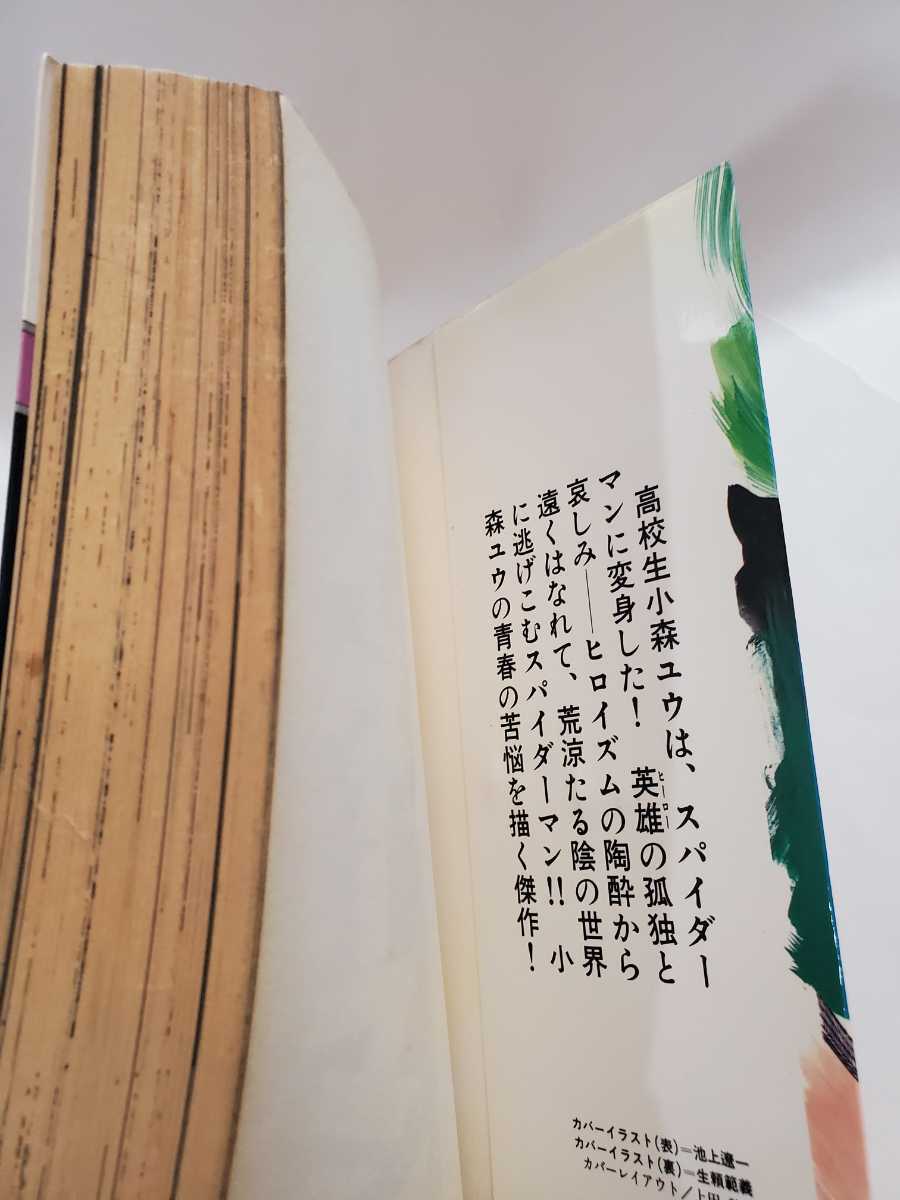 高校生小森ユウは、スパイダー
マンに変身した！　英雄の孤独と
ヒーロー
哀しみ――ヒロイズムの陶酔から
遠くはなれて、荒涼たる陰の世界
に逃げこむスパイダーマン!!　小
森ユウの青春の苦悩を描く傑作！
カバーイラスト(表)＝池上遼一
カバーイラスト(裏)＝生頼範義
カバーレイアウト／上田